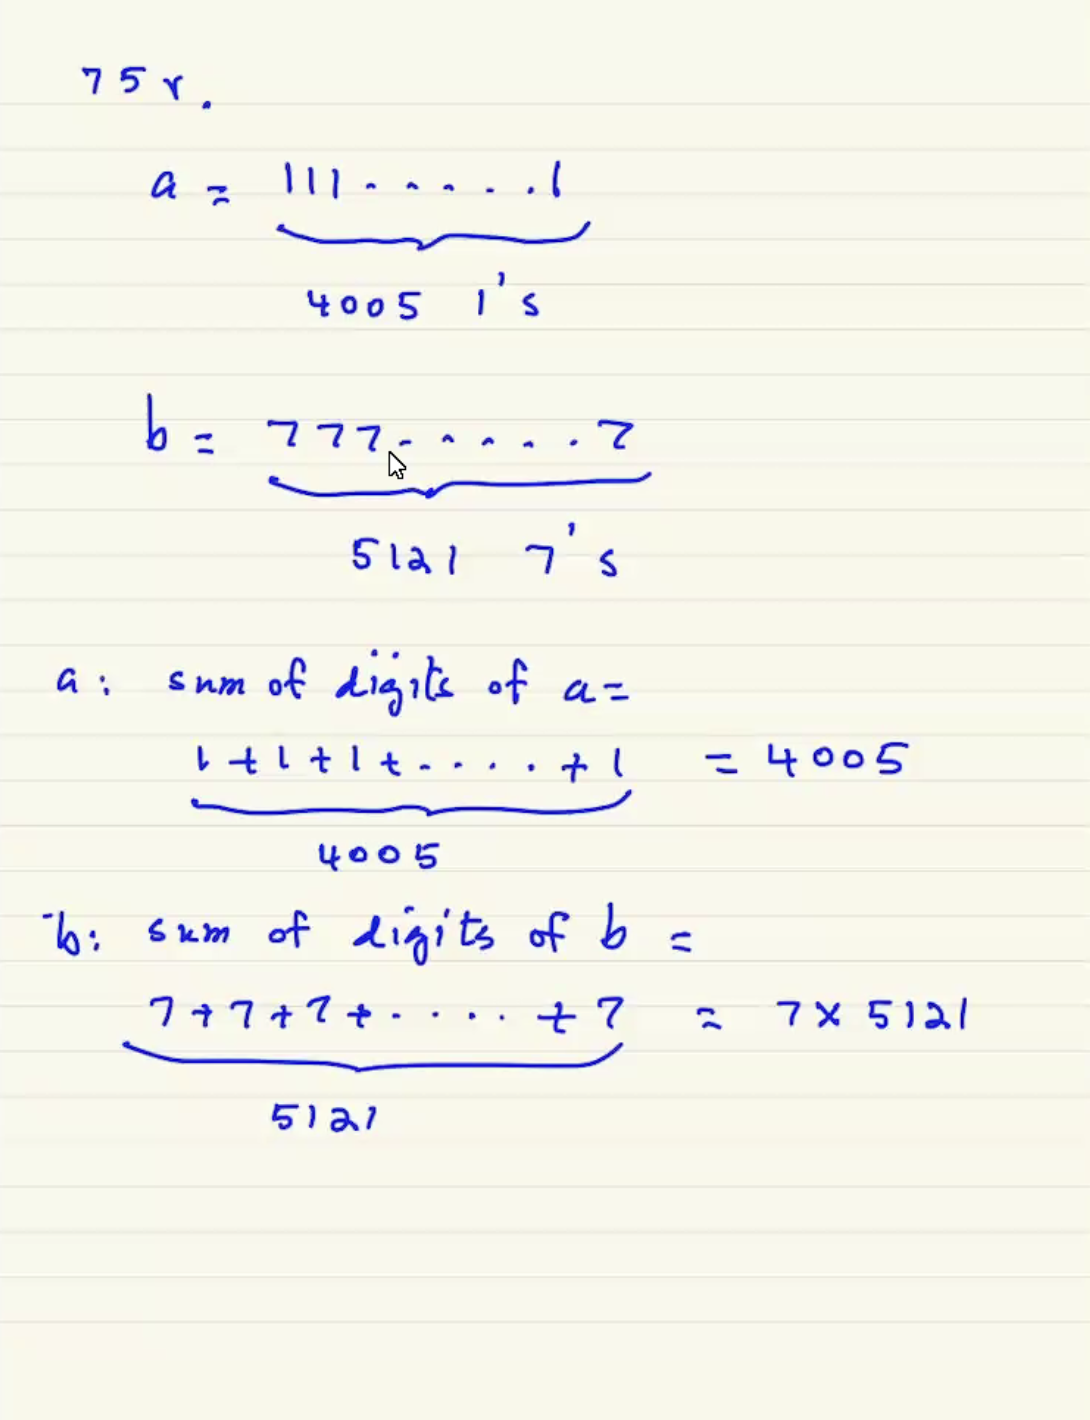 75r.
a = 111.....1
4005 1's
b = 777.....7
5121 7's
a: sum of digits of a=
1+1+1+....+1 = 4005
4005
b: sum of digits of b =
7+7+7+....+7 = 7×5121
5121